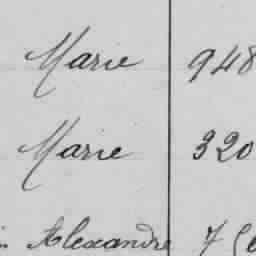 Marie 948
Marie 320
Alexandre 7